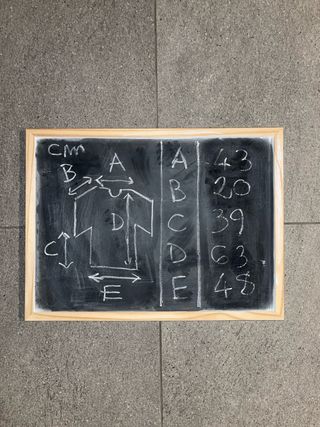 cm
A
B
D
C
E
A 43
B 20
C 39
D 63
E 48